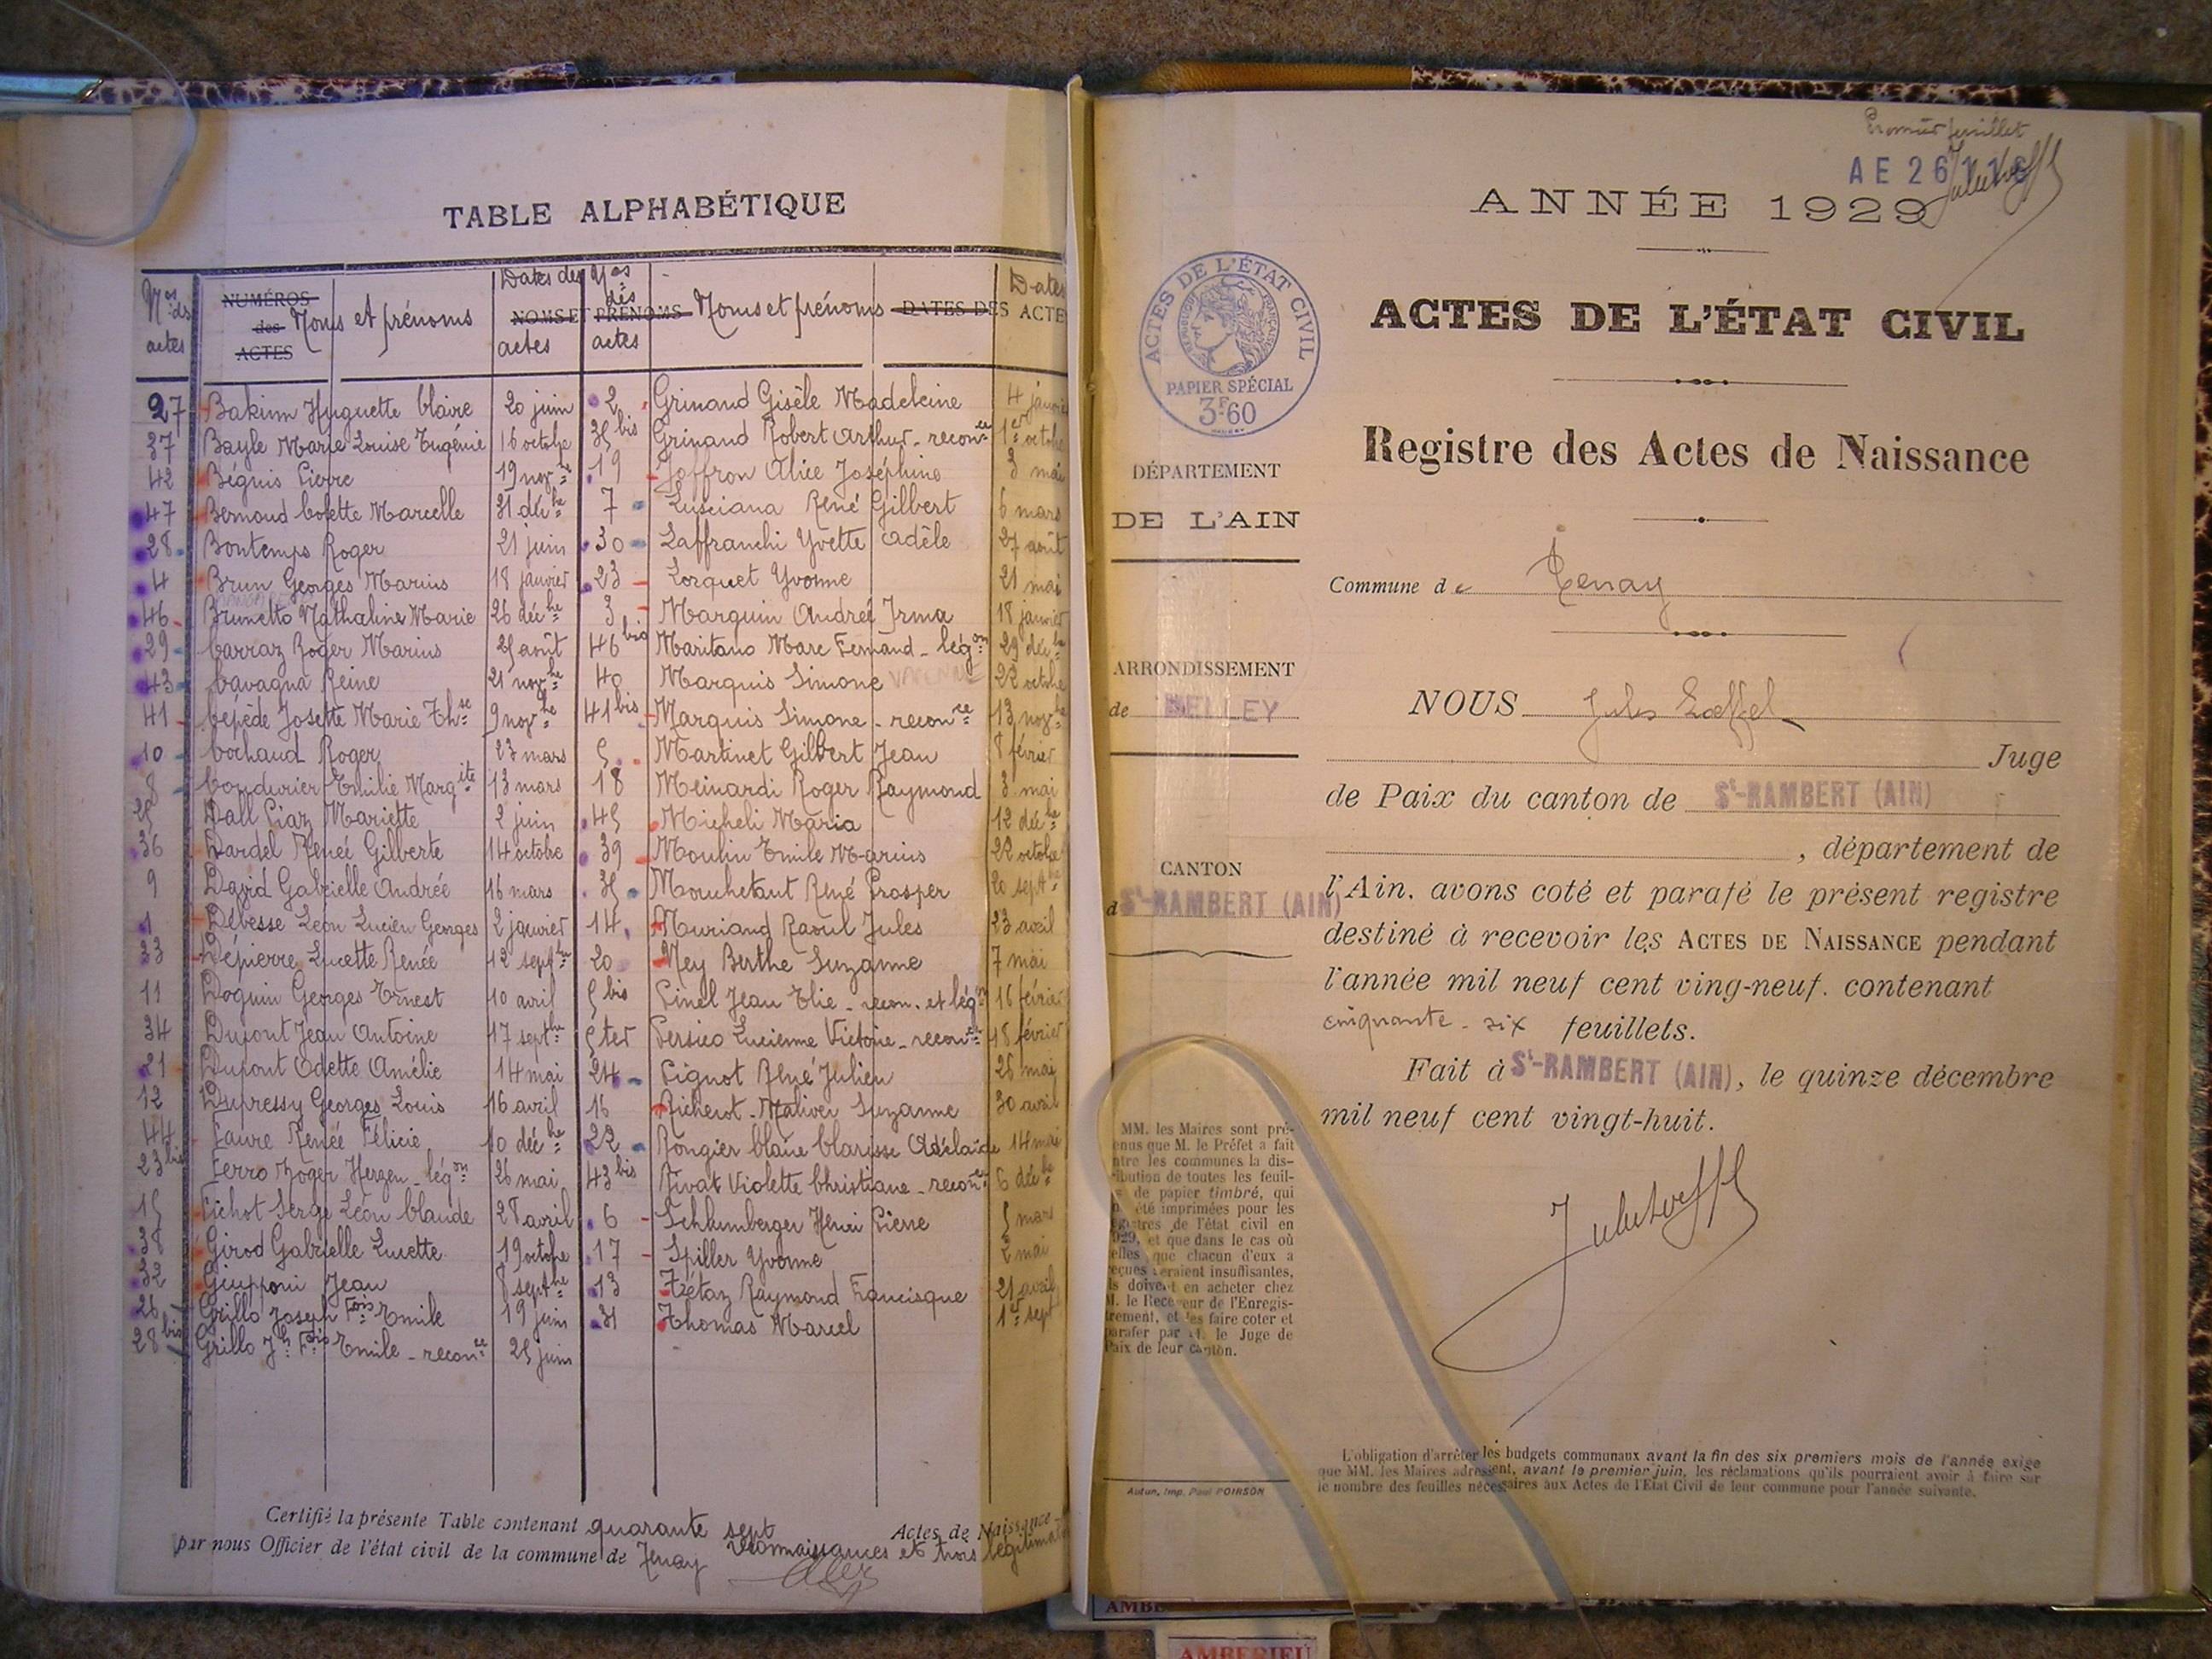 TABLE ALPHABÉTIQUE
Nos des actes NUMÉROS des ACTES Noms et prénoms Dates des actes NOMS ET PRÉNOMS Nos des actes Noms et prénoms DATES DES ACTES Dates
27 Bakinn Huguette Claire 20 juin 2 Grinand Gisèle Madeleine 4 janvier
37 Bayle Marie Louise Eugénie 16 octobre 35 bis Grinand Robert Arthur - reconce 1er octobre
42 Béguis Pierre 19 novbre 19 Joffron Alice Joséphine 3 mai
47 Bernoud Colette Marcelle 31 décbre 7 Lusciana René Gilbert 6 mars
28 Bontemps Roger 21 juin 30 Laffranchi Yvette Adèle 27 août
4 Brun Georges Marius 18 janvier 23 Lorquet Yvonne 21 mai
46 Brunetto Nathaline Marie 26 décbre 3 Marquin Andrée Irma 18 janvier
29 Carraz Roger Marius 25 août 46 bis Maritano Marc Fernand - légon 29 décbre
43 Cavagna Reine 21 novbre 40 Marquis Simone 22 octobre
41 Cépède Josette Marie Thse 9 novbre 41 bis Marquis Simone - reconce 13 novbre
10 Cochaud Roger 23 mars 5 Martinet Gilbert Jean 8 février
8 Couturier Emilie Margite 13 mars 18 Meinardi Roger Raymond 3 mai
25 Dall Piaz Mariette 2 juin 45 Micheli Maria 12 décbre
36 Dardel Renée Gilberte 14 octobre 39 Moulin Emile Marius 22 octobre
9 David Gabrielle Andrée 16 mars 35 Mouchetant René Prosper 20 septbre
1 Débesse Léon Lucien Georges 2 janvier 14 Muriand Raoul Jules 23 avril
33 Dépierre Lucette Renée 12 septbre 20 Ney Berthe Suzanne 7 mai
11 Doguin Georges Ernest 10 avril 5 bis Pinel Jean Elie - recon. et légon 16 février
34 Dupont Jean Antoine 17 septbre 5 ter Persico Lucienne Victoire - reconce 18 février
21 Dupont Odette Amélie 14 mai 24 Pignot René Julien 26 mai
12 Dupressy Georges Louis 16 avril 16 Richerot-Maliver Suzanne 30 avril
44 Faure Renée Félicie 10 décbre 22 Rongier Claire Clarisse Adélaïde 14 mai
23 bis Ferro Roger Hergen - légon 26 mai 43 bis Rivat Violette Christiane - reconce 6 décbre
15 Fichot Serge Léon Claude 28 avril 6 Schlumberger Henri Pierre 5 mars
38 Girod Gabrielle Lucette 19 octobre 17 Spiller Yvonne 2 mai
32 Giupponi Jean 8 septbre 13 Tétaz Raymond Francisque 21 avril
26 Grillo Joseph Fois Emile 19 juin 31 Thomas Marcel 1er sept
28 bis Grillo Jh Fois Emile - reconce 25 juin
Certifié la présente Table contenant quarante sept Actes de Naissance
par nous Officier de l'état civil de la commune de Tenay reconnaissances et trois légitimat
Premier feuillet
AE 26
ANNÉE 1929
ACTES DE L'ÉTAT CIVIL
RÉPUBLIQUE FRANÇAISE
PAPIER SPÉCIAL
3F60
ACTES DE L'ÉTAT CIVIL
Registre des Actes de Naissance
DÉPARTEMENT
DE L'AIN
ARRONDISSEMENT
de BELLEY
CANTON
de St-RAMBERT (AIN)
Commune de Tenay
NOUS Jules Loeffel
Juge
de Paix du canton de St-RAMBERT (AIN)
, département de
l'Ain, avons coté et parafé le présent registre
destiné à recevoir les ACTES DE NAISSANCE pendant
l'année mil neuf cent ving-neuf. contenant
cinquante-six feuillets.
Fait à St-RAMBERT (AIN), le quinze décembre
mil neuf cent vingt-huit.
MM. les Maires sont pré-
enus que M. le Préfet a fait
ntre les communes la dis-
ribution de toutes les feuil-
de papier timbré, qui
été imprimées pour les
gistres de l'état civil en
929, et que dans le cas où
elles que chacun d'eux a
reçues seraient insuffisantes,
ls doivent en acheter chez
M. le Receveur de l'Enregis-
trement, et les faire coter et
parafer par M. le Juge de
Paix de leur canton.
Autun, Imp. Paul POIRSON
L'obligation d'arrêter les budgets communaux avant la fin des six premiers mois de l'année exige
que MM. les Maires adressent, avant le premier juin, les réclamations qu'ils pourraient avoir à faire sur
le nombre des feuilles nécessaires aux Actes de l'Etat Civil de leur commune pour l'année suivante.
AMBE
AMBERIEU